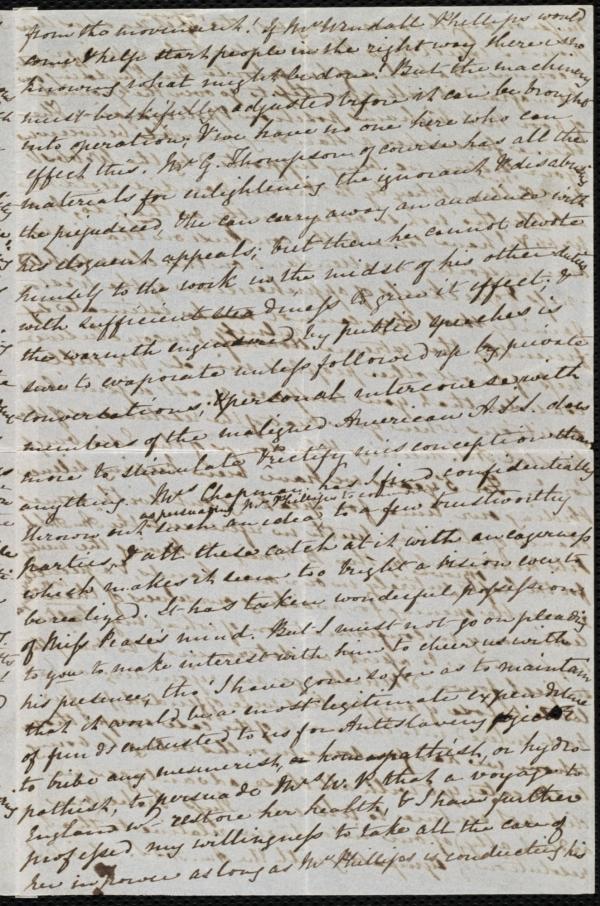 from the movement! If Mr Wendall Phillips would
come & help start people in the right way there is no
knowing what might be done! But the machinery
must be skilfully adjusted before it can be brought
into operation, & we have no one here who can
effect this. Mr G. Thompson of course has all the
materials for enlightening the ignorant & disabusing
the prejudiced, & he can carry away an audience with
his eloquent appeals; but then he cannot devote
himself to the work in the midst of his other duties
with sufficient steadiness to give it effect; &
the warmth engendered by public speeches is
sure to evaporate unless followed up by private
conversations; & personal intercourse with
members of the maligned American A.S.S. does
more to stimulate & rectify misconception than
anything. Mrs Chapman has I find confidentially
as persuading Mr Phillips to come
thrown out such an idea to a few trustworthy
parties, & all these catch at it with an eagerness
which makes it seem too bright a vision ever to
be realized. It has taken wonderful possession
of Miss Pease's mind. But I must not go on pleading
to you to make interest with him to cheer us with
his presence, tho' I have gone so far as to maintain
that it would be a most legitimate expenditure
of funds entrusted to us for Antislavery
to bribe any mesmerist, or homeopathist, or hydro-
pathist, to persuade Mrs W. P. that a voyage to
England wd restore her health, & I have further
professed my willingness to take all the care of
her in power as long as Mr Phillips is conducting his